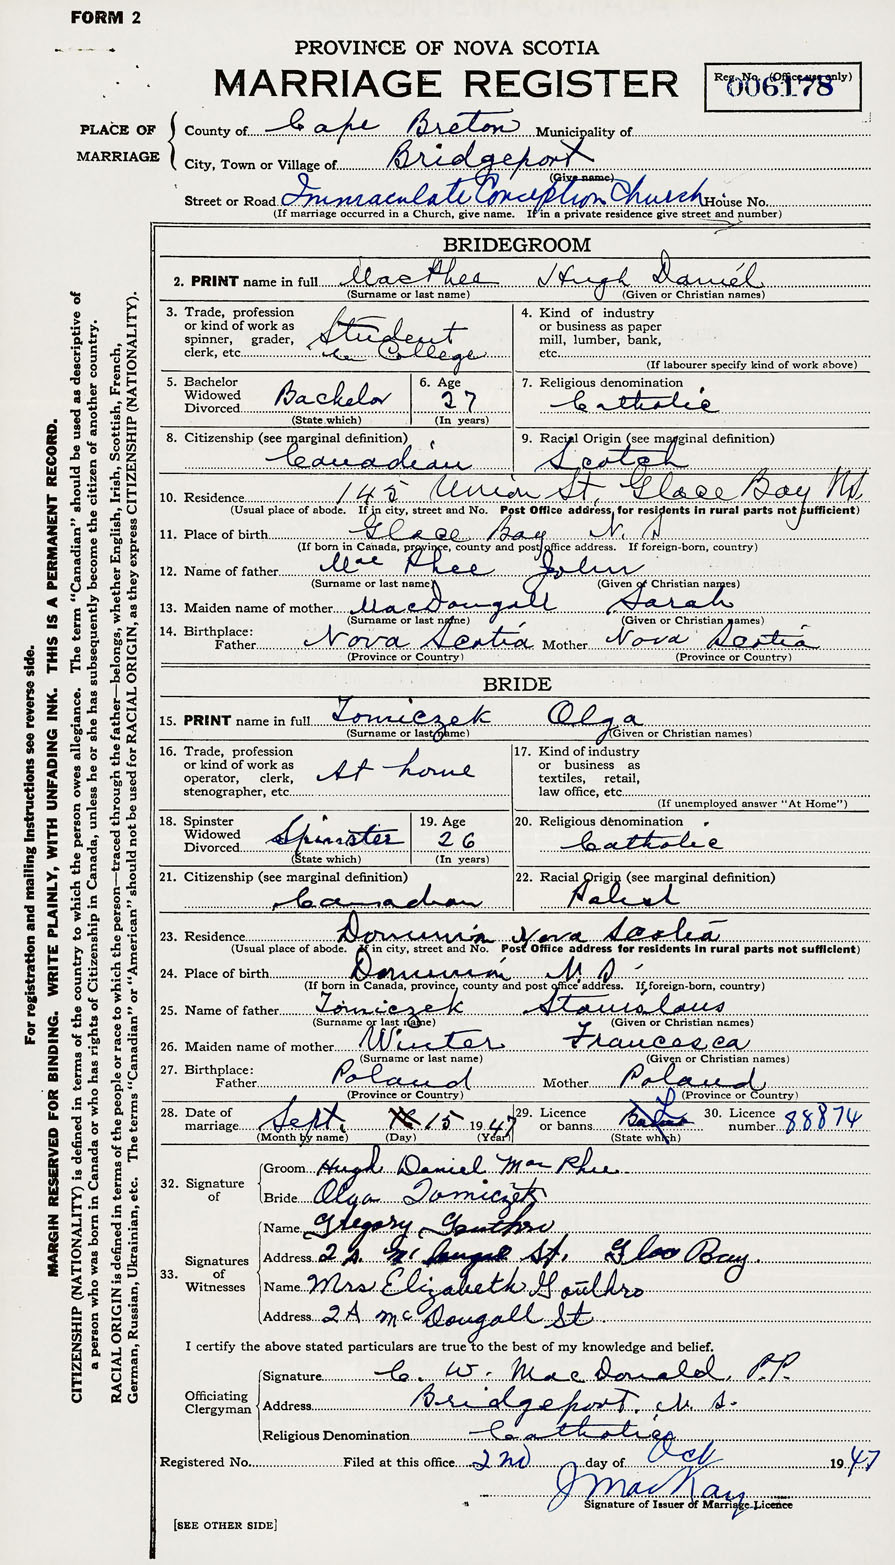 FORM 2
PROVINCE OF NOVA SCOTIA
MARRIAGE REGISTER
Reg. No. (Office use only)
006178
PLACE OF MARRIAGE
County of Cape Breton Municipality of
City, Town or Village of Bridgeport
(Give name)
Street or Road Immaculate Conception Church House No.
(If marriage occurred in a Church, give name. If in a private residence give street and number)
BRIDEGROOM
2. PRINT name in full MacPhee Hugh Daniel
(Surname or last name) (Given or Christian names)
3. Trade, profession or kind of work as spinner, grader, clerk, etc. Student in College
4. Kind of industry or business as paper mill, lumber, bank, etc.
(If labourer specify kind of work above)
5. Bachelor Widowed Divorced Bachelor
(State which)
6. Age 27
(In years)
7. Religious denomination
Catholic
8. Citizenship (see marginal definition)
Canadian
9. Racial Origin (see marginal definition)
Scotch
10. Residence 145 Union St. Glace Bay NS.
(Usual place of abode. If in city, street and No. Post Office address, for residents in rural parts not sufficient)
11. Place of birth Glace Bay N. S
(If born in Canada, province, county and post office address. If foreign-born, country)
12. Name of father Mac Phee John
(Surname or last name) (Given or Christian names)
13. Maiden name of mother MacDougall Sarah
(Surname or last name) (Given or Christian names)
14. Birthplace:
Father Nova Scotia Mother Nova Scotia
(Province or Country) (Province or Country)
BRIDE
15. PRINT name in full Tomiczek Olga
(Surname or last name) (Given or Christian names)
16. Trade, profession or kind of work as operator, clerk, stenographer, etc. At home
17. Kind of industry or business as textiles, retail, law office, etc.
(If unemployed answer "At Home")
18. Spinster Widowed Divorced Spinster
(State which)
19. Age 26
(In years)
20. Religious denomination
Catholic
21. Citizenship (see marginal definition)
Canadian
22. Racial Origin (see marginal definition)
Polish
23. Residence Dominion Nova Scotia
(Usual place of abode. If in city, street and No. Post Office address for residents in rural parts not sufficient)
24. Place of birth Dominion N. S
(If born in Canada, province, county and post office address. If foreign-born, country)
25. Name of father Tomiczek Stanislaus
(Surname or last name) (Given or Christian names)
26. Maiden name of mother Winter Francesca
(Surname or last name) (Given or Christian names)
27. Birthplace:
Father Poland Mother Poland
(Province or Country) (Province or Country)
28. Date of marriage Sept. 15 1947
(Month by name) (Day) (Year)
29. Licence or banns L
(State which)
30. Licence number 88874
32. Signature of
Groom Hugh Daniel MacPhee
Bride Olga Tomiczek
33. Signatures of Witnesses
Name Gregory Gouthro
Address 2 A. St. Glace Bay.
Name Mrs Elizabeth Gouthro
Address 2A McDougall St.
I certify the above stated particulars are true to the best of my knowledge and belief.
Officiating Clergyman
Signature C. W. MacDonald, P.P.
Address Bridgeport. N. S.
Religious Denomination Catholic
Registered No. Filed at this office 2nd day of Oct 1947
J MacKay
Signature of Issuer of Marriage Licence
[SEE OTHER SIDE]
For registration and mailing instructions see reverse side.
MARGIN RESERVED FOR BINDING. WRITE PLAINLY, WITH UNFADING INK. THIS IS A PERMANENT RECORD.
CITIZENSHIP (NATIONALITY) is defined in terms of the country to which the person owes allegiance. The term "Canadian" should be used as descriptive of
a person who was born in Canada or who has rights of Citizenship in Canada, unless he or she has subsequently become the citizen of another country.
RACIAL ORIGIN is defined in terms of the people or race to which the person—traced through the father—belongs, whether English, Irish, Scottish, French,
German, Russian, Ukrainian, etc. The terms "Canadian" or "American" should not be used for RACIAL ORIGIN, as they express CITIZENSHIP (NATIONALITY).